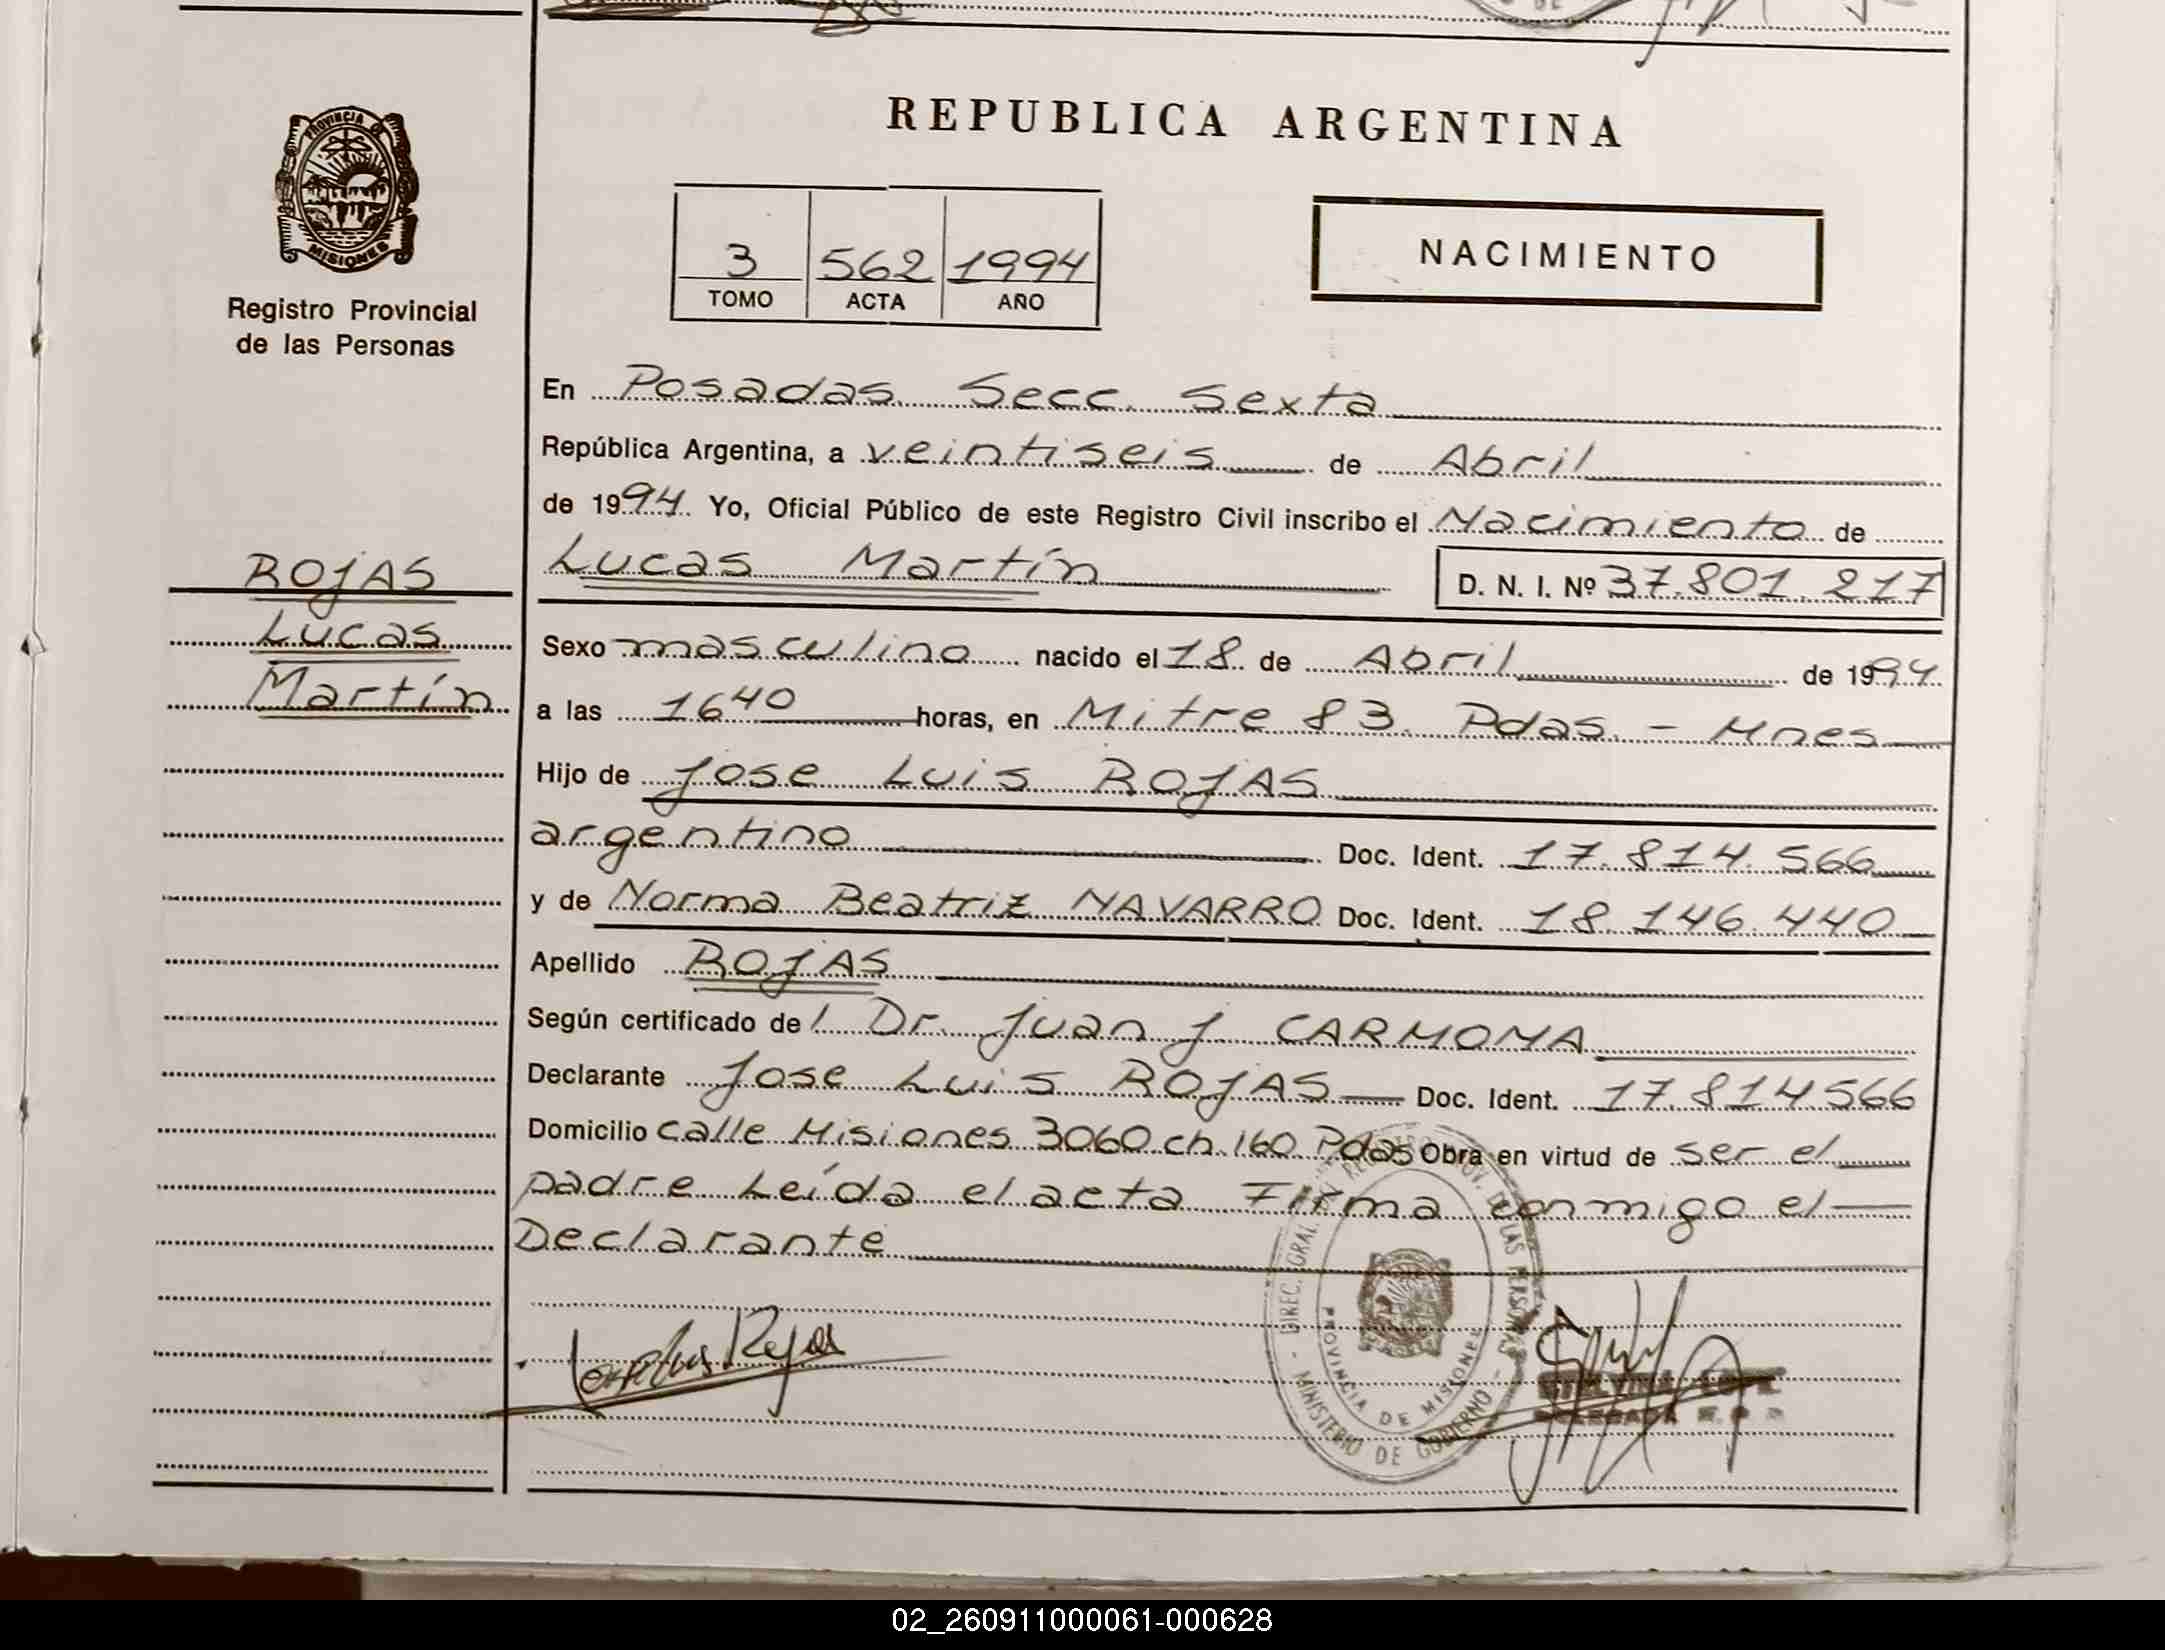 REPUBLICA ARGENTINA
PROVINCIA DE
MISIONES
Registro Provincial
de las Personas
3 562 1994
TOMO ACTA AÑO
NACIMIENTO
En Posadas Secc. Sexta
República Argentina, a veintiseis de Abril
de 1994 Yo, Oficial Público de este Registro Civil inscribo el Nacimiento de
Lucas Martín D. N. I. Nº 37.801.217
ROJAS
Lucas
Martín
Sexo masculino nacido el 18 de Abril de 1994
a las 16 40 horas, en Mitre 83 Pdas. - Mnes
Hijo de Jose Luis ROJAS
argentino Doc. Ident. 17.814.566
y de Norma Beatriz NAVARRO Doc. Ident. 18.146.440
Apellido ROJAS
Según certificado de l Dr. Juan J. CARMONA
Declarante Jose Luis ROJAS Doc. Ident. 17.814.566
Domicilio calle Misiones 3060 ch. 160 Pdas Obra en virtud de ser el
padre Leída el acta Firma conmigo el
Declarante
Rojas
DIREC. GRAL. REG. PROV. DE LAS PERSONAS
PROVINCIA DE MISIONES
- MINISTERIO DE GOBIERNO -
DELEGADA
02_260911000061-000628